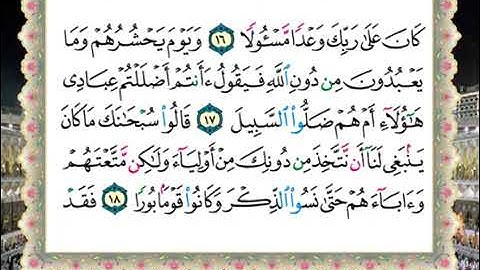 كَانَ عَلَىٰ رَبِّكَ وَعْدًا مَّسْـُٔولًا ١٦ وَيَوْمَ يَحْشُرُهُمْ وَمَا
يَعْبُدُونَ مِن دُونِ ٱللَّهِ فَيَقُولُ ءَأَنتُمْ أَضْلَلْتُمْ عِبَادِى
هَـٰٓؤُلَآءِ أَمْ هُمْ ضَلُّوا۟ ٱلسَّبِيلَ ١٧ قَالُوا۟ سُبْحَـٰنَكَ مَا كَانَ
يَنۢبَغِى لَنَآ أَن نَّتَّخِذَ مِن دُونِكَ مِنْ أَوْلِيَآءَ وَلَـٰكِن مَّتَّعْتَهُمْ
وَءَابَآءَهُمْ حَتَّىٰ نَسُوا۟ ٱلذِّكْرَ وَكَانُوا۟ قَوْمًۢا بُورًا ١٨ فَقَدْ